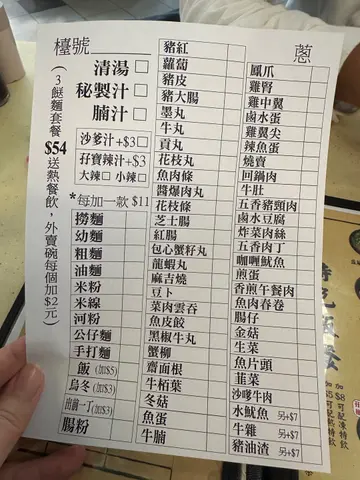 檯號
蔥
（3餸麵套餐$54送熱餐飲，外賣碗每個加$2元）
清湯□
秘製汁□
腩汁□
沙爹汁+$3□
孖寶辣汁+$3
大辣□ 小辣□
*每加一款 $11
撈麵
幼麵
粗麵
油麵
米粉
米線
河粉
公仔麵
手打麵
飯(加$5)
烏冬(加$3)
出前一丁(加$3)
腸粉
豬紅
蘿蔔
豬皮
豬大腸
墨丸
牛丸
貢丸
花枝丸
魚肉條
醬爆肉丸
花枝條
芝士腸
紅腸
包心蟹籽丸
龍蝦丸
麻吉燒
豆卜
菜肉雲吞
魚皮餃
黑椒牛丸
蟹柳
齋面根
牛栢葉
冬菇
魚蛋
牛腩
鳳爪
雞腎
雞中翼
鹵水蛋
雞翼尖
辣魚蛋
燒賣
回鍋肉
牛肚
五香豬頸肉
鹵水豆腐
炸菜肉絲
五香肉丁
咖喱魷魚
煎蛋
香煎午餐肉
魚肉春卷
腸仔
金菇
生菜
魚片頭
韮菜
沙嗲牛肉
水魷魚 另+$7
牛雜 另+$7
豬油渣 另+$7